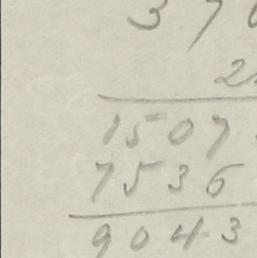 3 7
2
1507
7536
9043